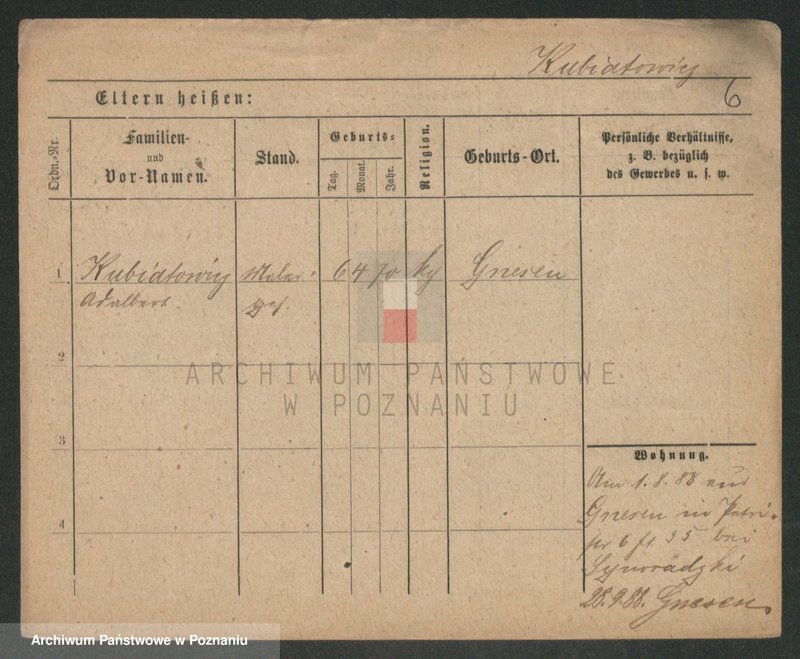 Kubiatowicz
6
Eltern heißen:
Ordn.-Nr.
Familien-
und
Vor-Namen.
Stand.
Geburts-
Tag.
Monat.
Jahr.
Religion.
Geburts-Ort.
Persönliche Verhältnisse,
z. B. bezüglich
des Gewerbes u. s. w.
1 Kubiatowicz Maler- 6 4 70 Gnesen
Adalbert
2
3
4
ARCHIWUM PAŃSTWOWE
W POZNANIU
Wohnung.
Am 1.8.88 aus
Gnesen in Petri-
6 35 bei
28.9.88. Gnesen.
Archiwum Państwowe w Poznaniu